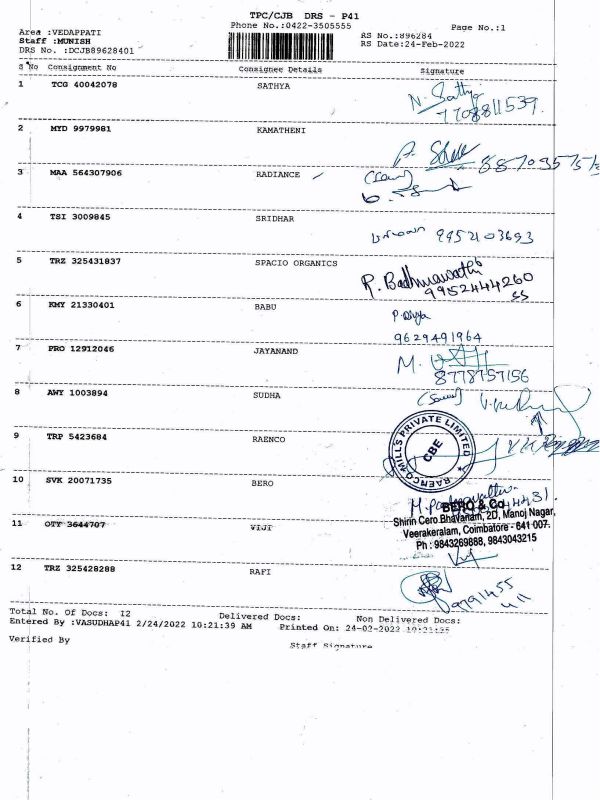 TPC/CJB DRS - P41
Phone No.:0422-3505555
Page No.:1
Area :VEDAPPATI
Staff :MUNISH
DRS No. :DCJB89628401
RS No.:896284
RS Date:24-Feb-2022
S No Consignment No Consignee Details Signature
1 TCG 40042078 SATHYA
N. Sathya
7708811539.
2 MYD 9979981 KAMATHENI
3 MAA 564307906 RADIANCE
4 TSI 3009845 SRIDHAR
9952103693
5 TRZ 325431837 SPACIO ORGANICS
R. Badhmavathi
9952444260
6 KMY 21330401 BABU
P. Divya
9629491964
7 PRO 12912046 JAYANAND
8778757156
8 AWY 1003894 SUDHA
9 TRP 5423684 RAENCO
RAENCOMILLS PRIVATE LIMITED
CBE
10 SVK 20071735 BERO
BERO & Co
Shirin Cero Bhavanam, 2D, Manoj Nagar,
Veerakeralam, Coimbatore - 641 007.
Ph : 9843269888, 9843043215
11 OTY 3644707 VIJI
12 TRZ 325428288 RAFI
Total No. Of Docs: 12 Delivered Docs: Non Delivered Docs:
Entered By :VASUDHAP41 2/24/2022 10:21:39 AM Printed On: 24-02-2022
Verified By Staff Signature